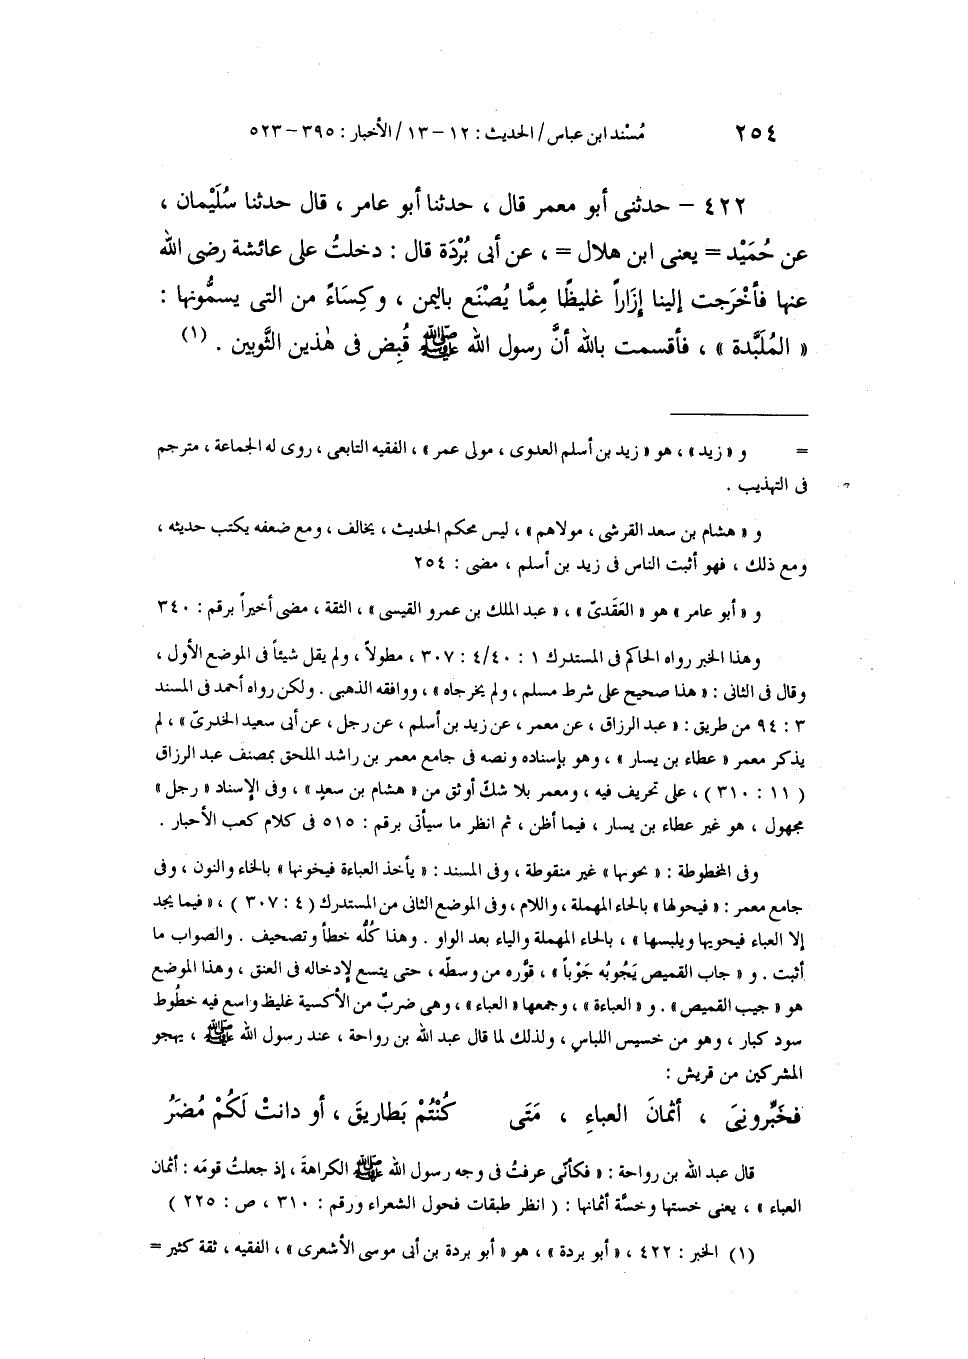 ٢٥٤ مُسْند ابن عباس / الحديث : ١٢ – ١٣ / الأخبار : ٣٩٥ – ٥٢٣
٤٢٢ – حدثنى أبو معمر قال ، حدثنا أبو عامر ، قال حدثنا سُلَيْمان ،
عن حُمَيْد = يعنى ابن هلال = ، عن أبى بُرْدَة قال : دخلتُ على عائشة رضى الله
عنها فأخْرَجت إلينا إزَاراً غليظًا مِمَّا يُصْنَع باليمن ، وكِسَاءً من التى يسمُّونها :
« المُلَبَّدة » ، فأقسمت بالله أنَّ رسول الله ﷺ قُبِض فى هٰذين الثَّوبين . (١)
= و « زيد » ، هو « زيد بن أسلم العدوى ، مولى عمر » ، الفقيه التابعى ، روى له الجماعة ، مترجم
فى التهذيب .
و « هشام بن سعد القرشى ، مولاهم » ، ليس محكم الحديث ، يخالف ، ومع ضعفه يكتب حديثه ،
ومع ذلك ، فهو أثبت الناس فى زيد بن أسلم ، مضى : ٢٥٤
و « أبو عامر » هو « العَقَدىّ » ، « عبد الملك بن عمرو القيسى » ، الثقة ، مضى أخيراً برقم : ٣٤٠
وهذا الخبر رواه الحاكم فى المستدرك ١ : ٤/٤٠ : ٣٠٧ ، مطولاً ، ولم يقل شيئاً فى الموضع الأول ،
وقال فى الثانى : « هذا صحيح على شرط مسلم ، ولم يخرجاه » ، ووافقه الذهبى . ولكن رواه أحمد فى المسند
٣ : ٩٤ من طريق : « عبد الرزاق ، عن معمر ، عن زيد بن أسلم ، عن رجل ، عن أبى سعيد الخدرىّ » ، لم
يذكر معمر « عطاء بن يسار » ، وهو بإسناده ونصه فى جامع معمر بن راشد الملحق بمصنف عبد الرزاق
( ١١ : ٣١٠ ) ، على تحريف فيه ، ومعمر بلا شكّ أوثق من « هشام بن سعدٍ » ، وفى الإسناد « رجل »
مجهول ، هو غير عطاء بن يسار ، فيما أظن ، ثم انظر ما سيأتى برقم : ٥١٥ فى كلام كعب الأحبار .
وفى المخطوطة : « بحونها » غير منقوطة ، وفى المسند : « يأخذ العباءة فيخونها » بالخاء والنون ، وفى
جامع معمر : « فيحولها » بالحاء المهملة ، واللام ، وفى الموضع الثانى من المستدرك ( ٤ : ٣٠٧ ) ، « فيما يجد
إلا العباء فيحويها ويلبسها » ، بالحاء المهملة والياء بعد الواو . وهذا كُلّه خطأ وتصحيف . والصواب ما
أثبت . و « جاب القميص يَجُوبُه جَوْباً » ، قوَّره من وسطه ، حتى يتسع لإدخاله فى العنق ، وهذا الموضع
هو « جيب القميص » . و « العباءة » ، وجمعها « العباء » ، وهى ضربٌ من الأكسية غليظ واسع فيه خطُوط
سود كبار ، وهو من خسيس اللباس ، ولذلك لما قال عبد الله بن رواحة ، عند رسول الله ﷺ ، يهجو
المشركين من قريش :
فخَبِّرونِىَ ، أثمانَ العباءِ ، مَتَى كُنْتُمْ بَطاريقَ ، أو دانتْ لَكُمْ مُضَرُ
قال عبد الله بن رواحة : « فكأنّى عرفتُ فى وجه رسول الله ﷺ الكراهةَ ، إذ جعلتُ قومَه : أثمان
العباء » ، يعنى خستها وخسَّة أثمانها : ( انظر طبقات فحول الشعراء ورقم : ٣١٠ ، ص : ٢٢٥ )
(١) الخبر : ٤٢٢ ، « أبو بردة » ، هو « أبو بردة بن أبى موسى الأشعرى » ، الفقيه ، ثقة كثير =